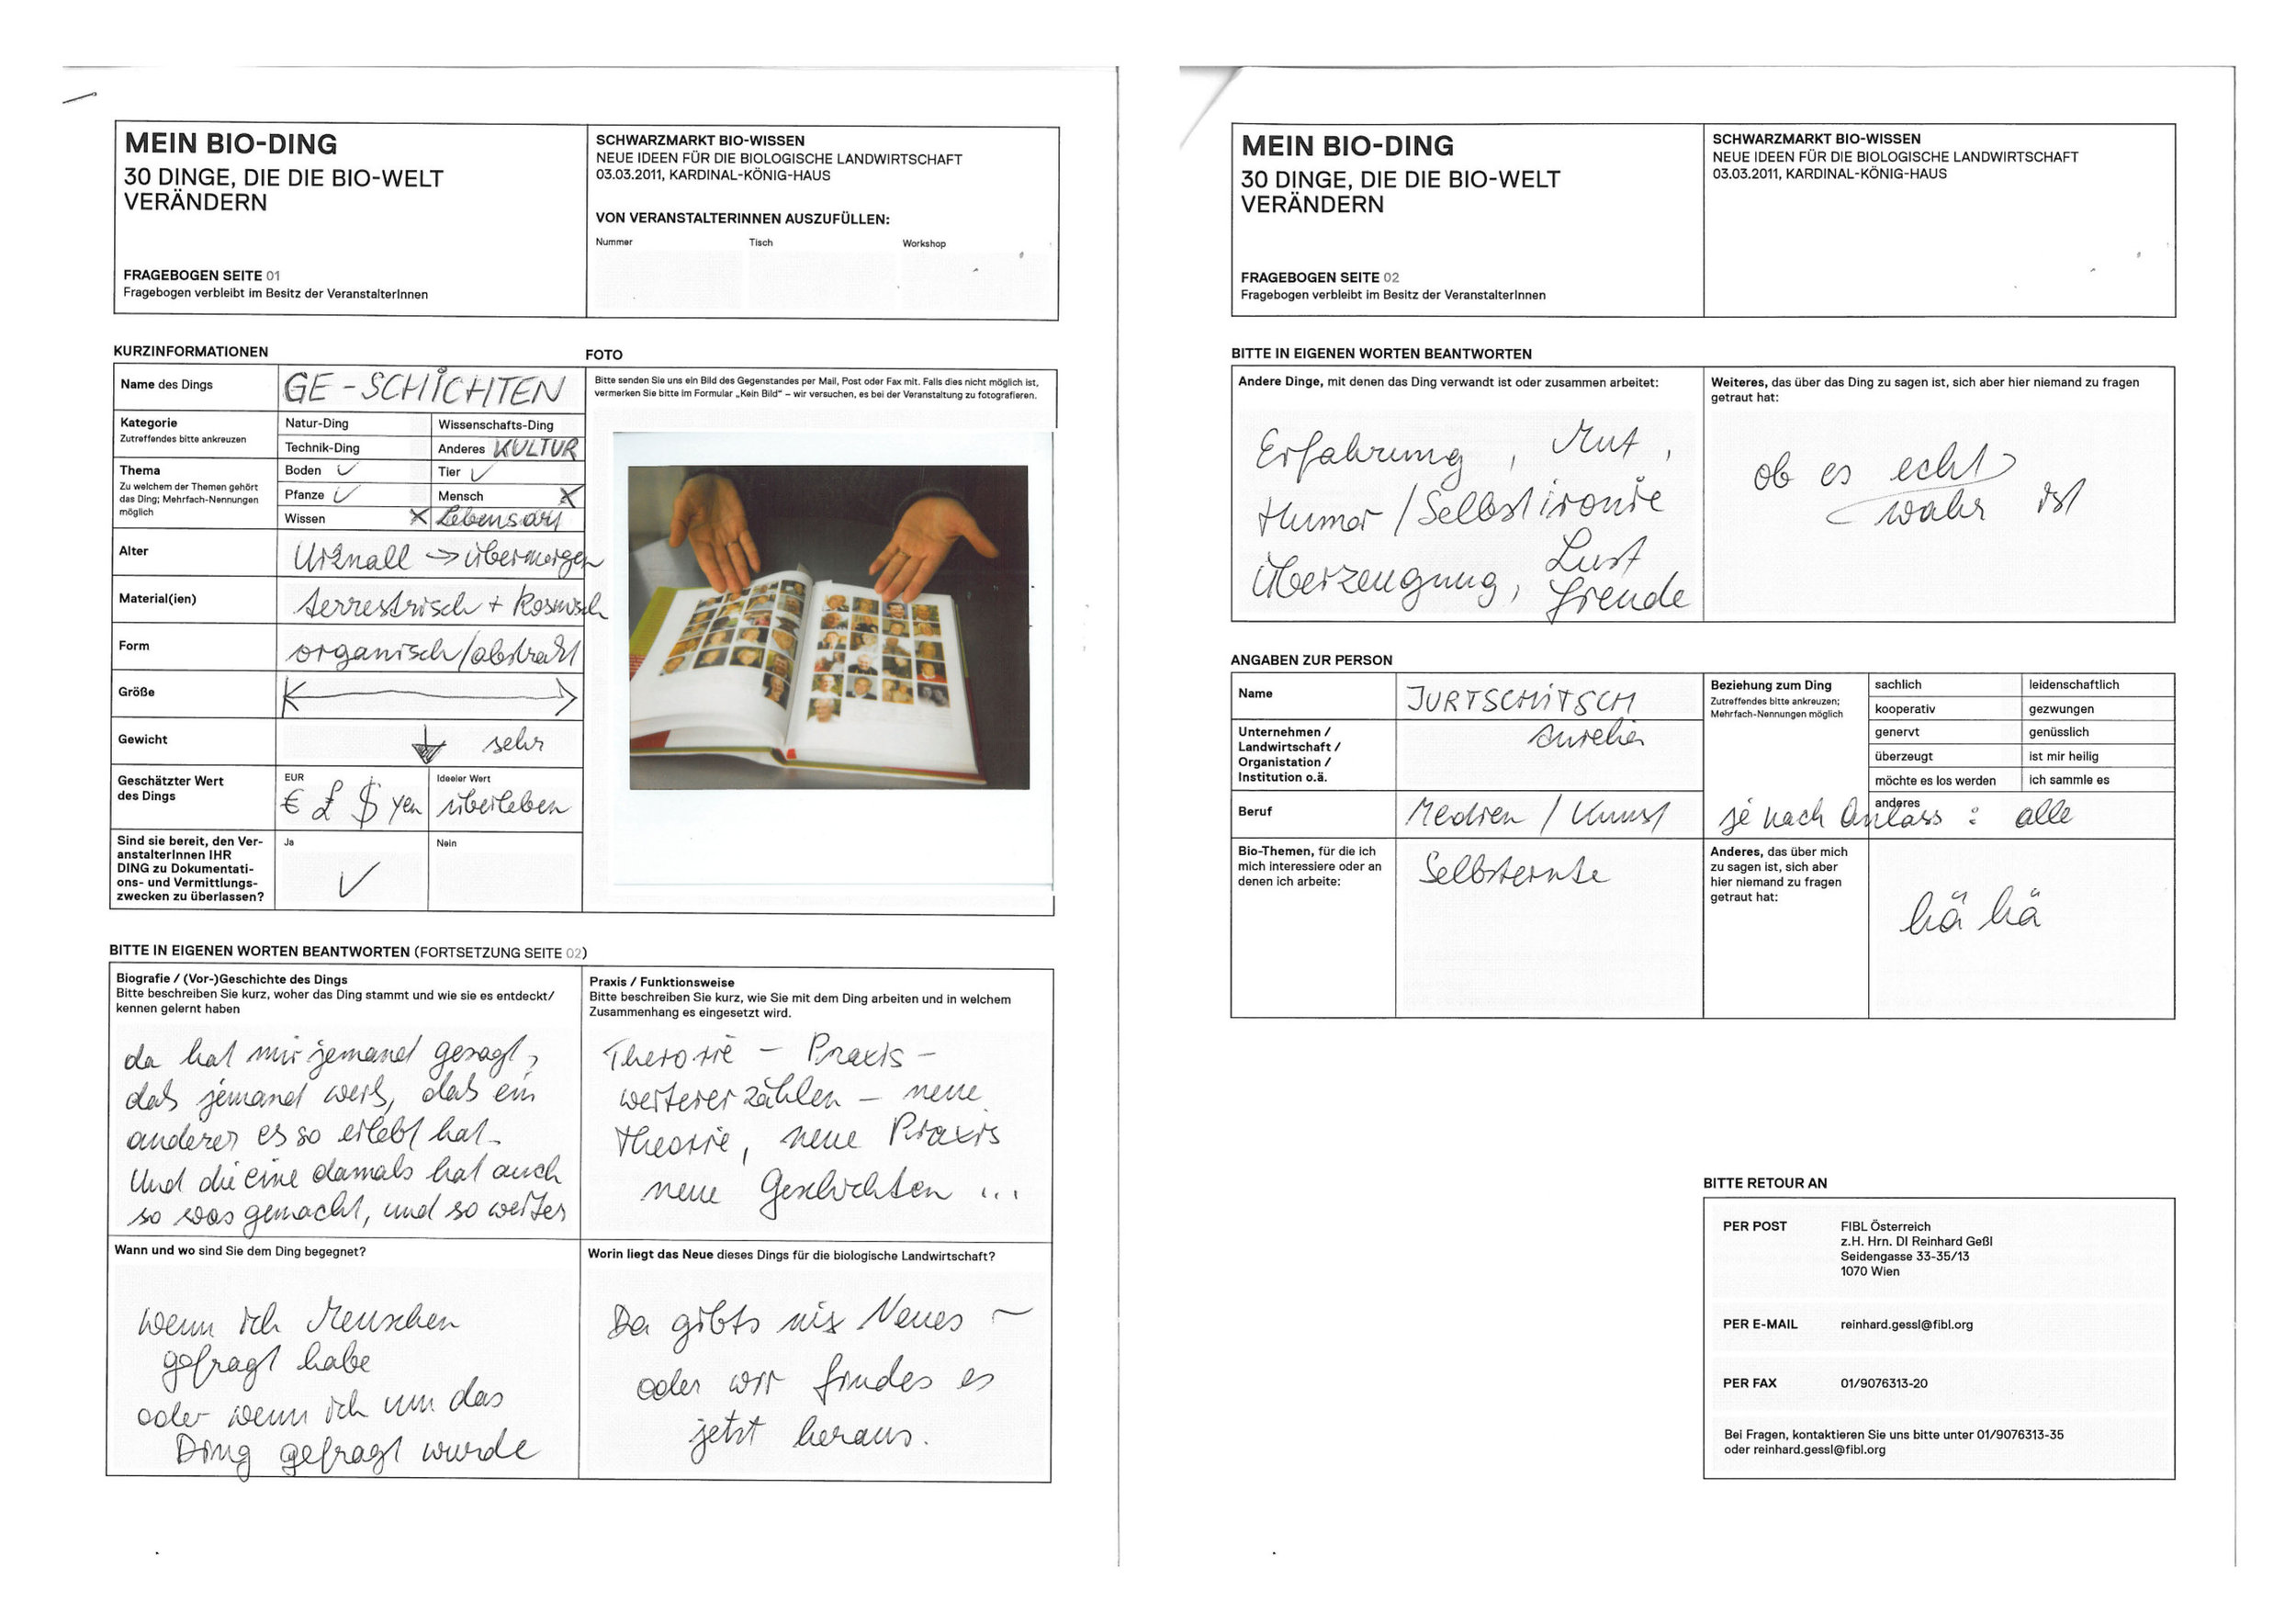 MEIN BIO-DING
30 DINGE, DIE DIE BIO-WELT
VERÄNDERN
FRAGEBOGEN SEITE 01
Fragebogen verbleibt im Besitz der VeranstalterInnen
SCHWARZMARKT BIO-WISSEN
NEUE IDEEN FÜR DIE BIOLOGISCHE LANDWIRTSCHAFT
03.03.2011, KARDINAL-KÖNIG-HAUS
VON VERANSTALTERINNEN AUSZUFÜLLEN:
Nummer Tisch Workshop
KURZINFORMATIONEN
Name des Dings GE-SCHICHTEN
Kategorie
Zutreffendes bitte ankreuzen
Natur-Ding Wissenschafts-Ding
Technik-Ding Anderes KULTUR
Thema
Zu welchem der Themen gehört
das Ding; Mehrfach-Nennungen
möglich
Boden ✓ Tier ✓
Pfanze ✓ Mensch X
Wissen X Lebensart
Alter Urknall → übermorgen
Material(ien) terrestrisch + kosmisch
Form organisch/abstrakt
Größe
Gewicht sehr
Geschätzter Wert
des Dings
EUR
€ £ $ yen
Ideeler Wert
überleben
Sind sie bereit, den Ver-
anstalterInnen IHR
DING zu Dokumentati-
ons- und Vermittlungs-
zwecken zu überlassen?
Ja ✓ Nein
FOTO
Bitte senden Sie uns ein Bild des Gegenstandes per Mail, Post oder Fax mit. Falls dies nicht möglich ist,
vermerken Sie bitte im Formular „Kein Bild“ – wir versuchen, es bei der Veranstaltung zu fotografieren.
BITTE IN EIGENEN WORTEN BEANTWORTEN (FORTSETZUNG SEITE 02)
Biografie / (Vor-)Geschichte des Dings
Bitte beschreiben Sie kurz, woher das Ding stammt und wie sie es entdeckt/
kennen gelernt haben
da hat mir jemand gesagt,
daß jemand weiß, daß ein
anderer es so erlebt hat.
Und die eine damals hat auch
so was gemacht, und so weiter
Praxis / Funktionsweise
Bitte beschreiben Sie kurz, wie Sie mit dem Ding arbeiten und in welchem
Zusammenhang es eingesetzt wird.
Therorie – Praxis –
weitererzählen – neue
Theorie, neue Praxis
neue Geschichten ...
Wann und wo sind Sie dem Ding begegnet?
wenn ich Menschen
gefragt habe
oder wenn ich um das
Ding gefragt wurde
Worin liegt das Neue dieses Dings für die biologische Landwirtschaft?
Da gibts nix Neues –
oder wir findes es
jetzt heraus.
MEIN BIO-DING
30 DINGE, DIE DIE BIO-WELT
VERÄNDERN
FRAGEBOGEN SEITE 02
Fragebogen verbleibt im Besitz der VeranstalterInnen
SCHWARZMARKT BIO-WISSEN
NEUE IDEEN FÜR DIE BIOLOGISCHE LANDWIRTSCHAFT
03.03.2011, KARDINAL-KÖNIG-HAUS
BITTE IN EIGENEN WORTEN BEANTWORTEN
Andere Dinge, mit denen das Ding verwandt ist oder zusammen arbeitet:
Erfahrung, Mut,
Humor / Selbstironie
Überzeugung, Lust
Freude
Weiteres, das über das Ding zu sagen ist, sich aber hier niemand zu fragen
getraut hat:
ob es echt
wahr ist
ANGABEN ZUR PERSON
Name JURTSCHITSCH
Aurelia
Unternehmen /
Landwirtschaft /
Organistation /
Institution o.ä.
Beruf Medien / Kunst
Bio-Themen, für die ich
mich interessiere oder an
denen ich arbeite:
Selbsternte
Beziehung zum Ding
Zutreffendes bitte ankreuzen;
Mehrfach-Nennungen möglich
sachlich leidenschaftlich
kooperativ gezwungen
genervt genüsslich
überzeugt ist mir heilig
möchte es los werden ich sammle es
anderes
je nach Anlass : alle
Anderes, das über mich
zu sagen ist, sich aber
hier niemand zu fragen
getraut hat:
hä hä
BITTE RETOUR AN
PER POST FIBL Österreich
z.H. Hrn. DI Reinhard Geßl
Seidengasse 33-35/13
1070 Wien
PER E-MAIL reinhard.gessl@fibl.org
PER FAX 01/9076313-20
Bei Fragen, kontaktieren Sie uns bitte unter 01/9076313-35
oder reinhard.gessl@fibl.org